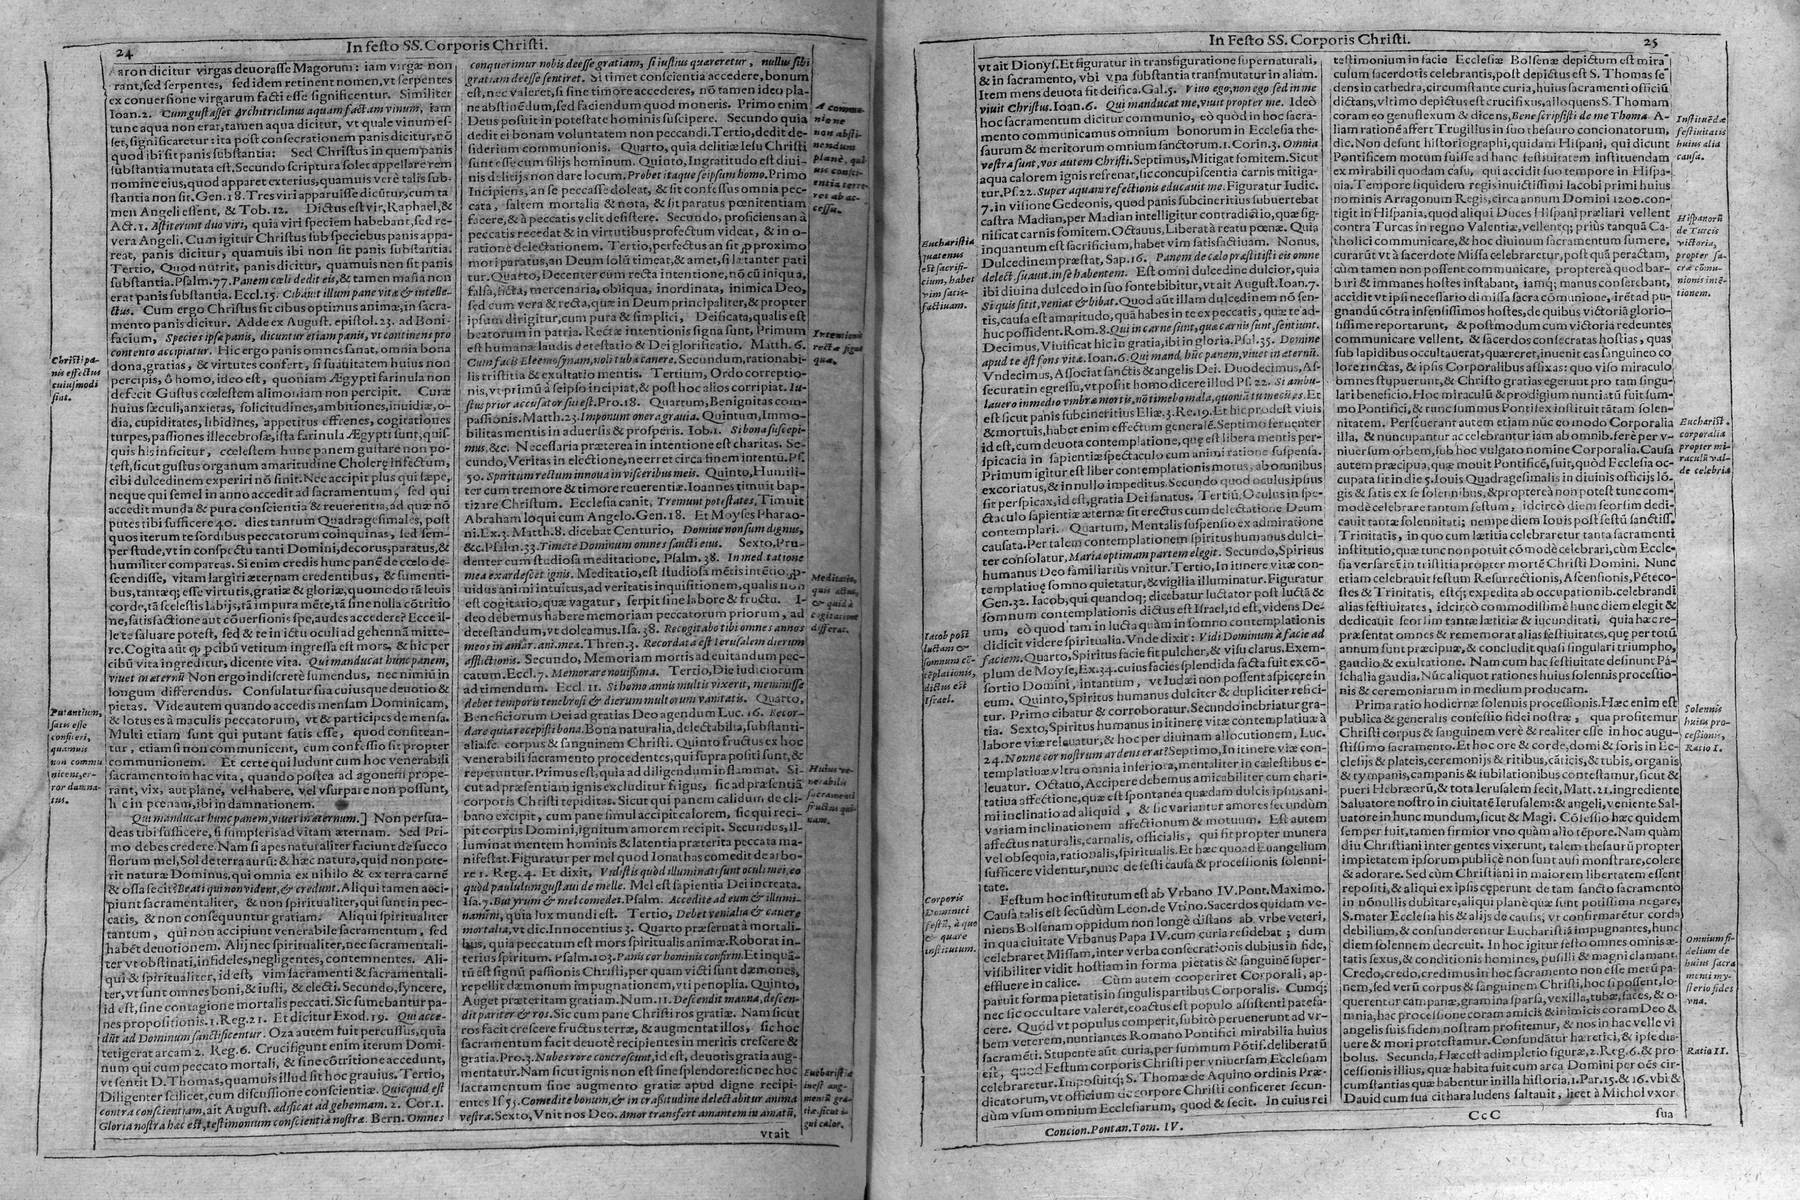 24
In festo SS. Corporis Christi.
Aaron dicitur virgas deuorasse Magorum: iam virgæ non
erant, sed serpentes, sed idem retinent nomen, vt serpentes
ex conuersione virgarum facti esse significentur. Similiter
Ioan.2. Cum gustasset Architriclinus aquam factam vinum, iam
tunc aqua non erat, tamen aqua dicitur, vt quale vinum es-
set, significaretur: ita post consecrationem panis dicitur, nō
quod ibi sit panis substantia: Sed Christi in quem panis
substantia mutata est. Secundo scriptura solet appellare rem
nomine eius, quod apparet exterius, quamuis verè talis sub-
stantia non sit. Gen.18. Tres viri apparuisse dicūtur, cum ta
men Angeli essent, & Tob.12. Dictus est vir, Raphael, &
Act.1. Astiterunt duo viri, quia viri speciem habebant, sed re-
vera Angeli. Cum igitur Christus sub speciebus panis appa-
reat, panis dicitur, quamuis ibi non sit panis substantia.
Tertio, Quod nutrit, panis dicitur, quamuis non sit panis
substantia. Psalm.77. Panem cœli dedit eis, & tamen mana non
erat panis substantia. Eccl.15. Cibauit illum pane vitæ & intelle-
ctus. Cum ergo Christus sit cibus optimus animæ, in sacra-
mento panis dicitur. Adde ex August. epistol.23. ad Boni-
facium, Species ipsæ panis, dicuntur etiam panis, vt continens pro
contento accipiatur. Hic ergo panis omnes sanat, omnia bona
dona, gratias, & virtutes confert, si suauitatem huius non
percipis, ô homo, ideo est, quoniam Ægypti farinula non
defecit Gustus cœlestem alimoniam non percipit. Curæ
huius sæculi, anxietas, solicitudines, ambitiones, inuidiæ, o-
dia, cupiditates, libidines, appetitus effrenes, cogitationes
turpes, passiones illecebrosæ, ista farinula Ægypti sunt, quis-
quis his inficitur, cœlestem hunc panem gustare non po-
test, sicut gustus organum amaritudine Cholerę infectum,
cibi dulcedinem experiri nō sinit. Nec accipit plus qui sæpe,
neque qui semel in anno accedit ad sacramentum, sed qui
accedit munda & pura conscientia & reuerentia, ad quæ nō
putes tibi sufficere 40. dies tantum Quadragesimales, post
quos iterum te sordibus peccatorum coinquinas, sed sem-
per stude, vt in conspectu tanti Domini, decorus, paratus, &
humiliter compareas. Si enim credis hunc panē de cœlo de-
scendisse, vitam largiri æternam credentibus, & sumenti-
bus, tantæq; esse virtutis, gratiæ & gloriæ, quomodo tā leuis
corde, tā scelestis labijs, tā impura mēte, tā sine nulla cōtritio
ne, satisfactione aut cōuersionis spe, audes accedere? Ecce il-
le te saluare potest, sed & te in ictu oculi ad gehennā mitte-
re. Cogita aūt q; p cibū vetitum ingressa est mors, & hic per
cibū vita ingreditur, dicente vita. Qui manducat hunc panem,
viuet in æternū Non ergo indiscretè sumendus, nec nimiū in
longum differendus. Consulatur sua cuiusque deuotio &
pietas. Vide autem quando accedis mensam Dominicam,
& lotus es à maculis peccatorum, vt & participes de mensa.
Multi etiam sunt qui putant satis esse, quod confitean-
tur, etiamsi non communicent, cum confessio sit propter
communionem. Et certe qui ludunt cum hoc venerabili
sacramento in hac vita, quando postea ad agonem prope-
rant, vix, aut plane, vel habere, vel vsurpare non possunt,
hic in pœnam, ibi in damnationem.
Qui manducat hunc panem, viuet in æternum.] Non persua-
deas tibi sufficere, si sumpseris ad vitam æternam. Sed Pri-
mo debes credere. Nam si apes naturaliter faciunt de succo
florum mel, Sol de terra aurū: & hæc natura, quid non pote-
rit naturæ Dominus, qui omnia ex nihilo & ex terra carnē
& ossa fecit? Beati qui non vident, & credunt. Aliqui tamen acci-
piunt sacramentaliter, & non spiritualiter, qui sunt in pec-
catis, & non consequuntur gratiam. Aliqui spiritualiter
tantum, qui non accipiunt venerabile sacramentum, sed
habēt deuotionem. Alij nec spiritualiter, nec sacramentali-
ter vt obstinati, infideles, negligentes, contemnentes. Ali-
qui & spiritualiter, id est, vim sacramenti & sacramentali-
ter, vt sunt omnes boni, & iusti, & electi. Secundo, syncere,
id est, sine contagione mortalis peccati. Sic sumebantur pa-
nes propositionis. 1. Reg.21. Et dicitur Exod.19. Qui acce-
dūt ad Dominum sanctificentur. Oza autem fuit percussus, quia
tetigerat arcam 2. Reg.6. Crucifigunt enim iterum Domi-
num qui cum peccato mortali, & sine cōtritione accedunt,
vt sentit D. Thomas, quamuis illud sit hoc grauius. Tertio,
Diligenter scilicet, cum discussione conscientiæ. Quicquid est
contra conscientiam, ait August. ædificat ad gehennam. 2. Cor.1.
Gloria nostra hæc est, testimonium conscientiæ nostræ. Bern. Omnes
Christi pa-
nis effectus
cuiusmodi
sint.
Putantium,
satis esse
confiteri,
quamuis
non commu
nicent, er-
ror damna-
tus.
conquerimur nobis deesse gratiam, si iustius quæreretur, nullus sibi
gratiam deesse sentiret. Si timet conscientia accedere, bonum
est, nec valeret, si sine timore accederes, nō tamen ideo pla-
ne abstinēdum, sed faciendum quod moneris. Primo enim
Deus posuit in potestate hominis suscipere. Secundo quia
dedit ei bonam voluntatem non peccandi. Tertio, dedit de-
siderium communionis. Quarto, quia delitiæ Iesu Christi
sunt esse cum filijs hominum. Quinto, Ingratitudo est diui-
nis delitijs non dare locum. Probet itaque seipsum homo. Primo
Incipiens, an se peccasse doleat, & sit confessus omnia pec-
cata, saltem mortalia & nota, & sit paratus pœnitentiam
facere, & à peccatis velit desistere. Secundo, proficiens an à
peccatis recedat & in virtutibus profectum videat, & in o-
ratione delectationem. Tertio, perfectus an sit p proximo
mori paratus, an Deum solū timeat, & amet, si lætanter pati
tur. Quarto, Decenter cum recta intentione, nō cū iniqua,
falsa, ficta, mercenaria, obliqua, inordinata, inimica Deo,
sed cum vera & recta, quæ in Deum principaliter, & propter
ipsum dirigitur, cum pura & simplici, Deificata, qualis est
beatorum in patria. Rectæ intentionis signa sunt, Primum
est humanæ laudis detestatio & Dei glorificatio. Matth.6.
Cum facis Eleemosynam, noli tuba canere. Secundum, rationabi-
lis tristitia & exultatio mentis. Tertium, Ordo correptio-
nis, vt primū à seipso incipiat, & post hoc alios corripiat. Iu-
stus prior accusator sui est. Pro.18. Quartum, Benignitas com-
passionis. Matth.23. Imponunt onera grauia. Quintum, Immo-
bilitas mentis in aduersis & prosperis. Iob.1. Si bona suscepi-
mus, &c. Necessaria præterea in intentione est charitas. Se-
cundo, Veritas in electione, ne erret circa finem intentū. Ps.
50. Spiritum rectum innoua in visceribus meis. Quinto, Humili-
ter cum tremore & timore reuerentiæ. Ioannes timuit bap-
tizare Christum. Ecclesia canit, Tremunt potestates, Timuit
Abraham loqui cum Angelo. Gen.18. Et Moyses Pharao-
ni. Ex.3. Matth.8. dicebat Centurio, Domine non sum dignus,
&c. Psalm.33. Timete Dominum omnes sancti eius. Sexto, Pru-
denter cum studiosa meditatione, Psalm.38. In meditatione
mea exardescet ignis. Meditatio, est studiosa mētis intētio, p-
uidus animi intuitus, ad veritatis inquisitionem, qualis non
est cogitatio, quæ vagatur, serpit sine labore & fructu. I-
deo debemus habere memoriam peccatorum priorum, ad
detestandum, vt doleamus. Isa.38. Recogitabo tibi omnes annos
meos in amar. ani. mea. Thren.3. Recordata est Ierusalem dierum
afflictionis. Secundo, Memoriam mortis ad euitandum pec-
catum. Eccl.7. Memorare nouissima. Tertio, Die iudiciorum
ad timendum. Eccl.11. Si homo annis multis vixerit, meminisse
debet temporis tenebrosi & dierum multorum vanitatis. Quarto,
Beneficiorum Dei ad gratias Deo agendum Luc.16. Recor-
dare quia recepisti bona. Bona naturalia, delectabilia, substanti-
alia: se. corpus & sanguinem Christi. Quinto fructus ex hoc
venerabili sacramento procedentes, qui supra positi sunt, &
repetuntur. Primus est, quia ad diligendum inflammat. Si-
cut ad præsentiam ignis excluditur frigus, sic ad præsentiā
corporis Christi tepiditas. Sicut qui panem calidum de cli-
bano excipit, cum pane simul accipit calorem, sic qui reci-
pit corpus Domini, ignitum amorem recipit. Secundus, Il-
luminat mentem hominis & latentia præterita peccata ma-
nifestat. Figuratur per mel quod Ionathas comedit de arbo-
re 1. Reg.4. Et dixit, Vidistis quòd illuminati sunt oculi mei, eo
quòd paululum gustaui de melle. Mel est sapientia Dei increata.
Isa.7. Butyrum & mel comedet. Psalm. Accedite ad eum & illumi-
namini, quia lux mundi est. Tertio, Debet venialia & cauere
mortalia, vt dic. Innocentius 3. Quarto præseruat à mortali-
bus, quia peccatum est mors spiritualis animæ. Roborat in-
terius spiritum. Psalm.103. Panis cor hominis confirm. Et inquā-
tū est signū passionis Christi, per quam victi sunt dæmones,
repellit dæmonem impugnationem, vti penoplia. Quinto,
Auget præteritam gratiam. Num.11. Descendit manna, descen-
dit pariter & ros. Sic cum pane Christi ros gratiæ. Nam sicut
ros facit crescere fructus terræ, & augmentat illos, sic hoc
sacramentum facit deuotè recipientes in meritis crescere &
gratia. Pro.3. Nubes rore concrescunt, id est, deuotis gratia aug-
mentatur. Nam sicut ignis non est sine splendore: sic nec hoc
sacramentum sine augmento gratiæ apud digne recipi-
entes If 55. Comedite bonum, & in crassitudine delectabitur anima
vestra. Sexto, Vnit nos Deo. Amor transfert amantem in amatū,
vt ait
A commu-
nione
non absti-
nendum
planè, qui-
uis consci-
entia terre-
res ab ac-
cessu.
Intentionis
rectæ signa
quæ.
Meditatio,
quis actus,
& quid à
cogitatione
differat.
Huius ve-
nerabilis
sacramenti
fructus qui-
nam.
Eucharistia
inest aug-
mentū gra-
tiæ sicut i-
gni calor.
In Festo SS. Corporis Christi.
25
vt ait Dionys. Et figuratur in transfiguratione supernaturali,
& in sacramento, vbi vna substantia transmutatur in aliam.
Item mens deuota fit deifica. Gal.5. Viuo ego, non ego sed in me
viuit Christus. Ioan.6. Qui manducat me, viuit propter me. Ideò
hoc sacramentum dicitur communio, eò quòd in hoc sacra-
mento communicamus omnium bonorum in Ecclesia the-
saurum & meritorum omnium sanctorum. 1. Corin.3. Omnia
vestra sunt, vos autem Christi. Septimus, Mitigat fomitem. Sicut
aqua calorem ignis refrenat, sic concupiscentia carnis mitiga-
tur, Ps.22. Super aquam refectionis educauit me. Figuratur Iudic.
7. in visione Gedeonis, quod panis subcinericius subuertebat
castra Madian, per Madian intelligitur contradictio, quæ sig-
nificat carnis fomitem. Octauus, Liberat à reatu pœnæ. Quia
inquantum est sacrificium, habet vim satisfactiuam. Nonus,
Dulcedinem præstat, Sap.16. Panem de cælo præstitisti eis omne
delect. suauit. in se habentem. Est omni dulcedine dulcior, quia
ibi diuina dulcedo in suo fonte bibitur, vt ait August. Ioan.7.
Si quis sitit, veniat & bibat. Quod aūt illam dulcedinem nō sen-
tis, causa est amaritudo, quā habes in te ex peccatis, quæ te ad-
huc possident. Rom.8. Qui in carne sunt, quæ carnis sunt, sentiunt.
Decimus, Viuificat hic in gratia, ibi in gloria. Psal.35. Domine
apud te est fons vitæ. Ioan.6. Qui mand. hūc panem, viuet in æternū.
Vndecimus, Associat sanctis & angelis Dei. Duodecimus, As-
securat in egressu, vt possit homo dicere illud Ps. 22. Si ambu-
lauero in medio vmbræ mortis, nō timebo mala, quoniā tu mecū es. Et
est sicut panis subcinericius Eliæ.3. Re.19. Et hic prodest viuis
& mortuis, habet enim effectum generalē. Septimo feruenter
id est, cum deuota contemplatione, quę est libera mentis per-
spicacia in sapientiæ spectaculo cum animi ratione suspensa.
Primum igitur est liber contemplationis motus, ab omnibus
excoriatus, & in nullo impeditus. Secundo quod oculus ipsius
sit perspicax, id est, gratia Dei sanatus. Tertiū, Oculus in spe-
ctaculo sapientiæ æternæ sit erectus cum delectatione Deum
contemplari. Quartum, Mentalis suspensio ex admiratione
causata. Per talem contemplationem spiritus humanus dulci-
ter consolatur, Maria optimam partem elegit. Secundo, Spiritus
humanus Deo familiarius vnitur. Tertio, In itinere vitæ con-
templatiuę somno quietatur, & vigilia illuminatur. Figuratur
Gen.32. Iacob, qui quandoq; dicebatur luctator post luctā &
somnum contemplationis dictus est Israel, id est, videns De-
um, eò quod tam in lucta quàm in somno contemplationis
didicit videre spiritualia. Vnde dixit: Vidi Dominum à facie ad
faciem. Quarto, Spiritus facie fit pulcher, & visu clarus. Exem-
plum de Moyse, Ex.34. cuius facies splendida facta fuit ex cō-
sortio Domini, intantum, vt Iudæi non possent aspicere in
eum. Quinto, Spiritus humanus dulciter & dupliciter refici-
tur. Primo cibatur & corroboratur. Secundo inebriatur gra-
tia. Sexto, Spiritus humanus in itinere vitæ contemplatiuæ à
labore viæ releuatur, & hoc per diuinam allocutionem, Luc.
24. Nonne cor nostrum ardens erat? Septimo, In itinere viæ con-
templatiuæ vltra omnia inferiora, mentaliter in cælestibus e-
leuatur. Octauo, Accipere debemus amicabiliter cum chari-
tatiua affectione, quæ est spontanea quædam dulcis ipsius ani-
mi inclinatio ad aliquid, & sic variantur amores secundùm
variam inclinationem affectionum & motuum. Est autem
affectus naturalis, carnalis, officialis, qui fit propter munera
vel obsequia, rationalis, spiritualis. Et hæc quoad Euangelium
sufficere videntur, nunc de festi causa & processionis solenni-
tate.
Festum hoc institutum est ab Vrbano IV. Pont. Maximo.
Causa talis est secūdùm Leon. de Vtino. Sacerdos quidam ve-
niens Bolsenam oppidum non longè distans ab vrbe veteri,
in qua ciuitate Vrbanus Papa IV. cum curia residebat; dum
celebraret Missam, inter verba consecrationis dubius in fide,
visibiliter vidit hostiam in forma pietatis & sanguinē super-
effluere in calice. Cùm autem cooperiret Corporali, ap-
paruit forma pietatis in singulis partibus Corporalis. Cumq;
nec sic occultare valeret, coactus est populo assistenti patefa-
cere. Quòd vt populus comperit, subitò peruenerunt ad vr-
bem veterem, nuntiantes Romano Pontifici mirabilia huius
sacramēti. Stupente aūt curia, per summum Pōtif. deliberatū
est, quod Festum corporis Christi per vniuersam Ecclesiam
celebraretur. Imposuitq; S. Thomæ de Aquino ordinis Præ-
dicatorum, vt officium de corpore Christi conficeret secun-
dùm vsum omnium Ecclesiarum, quod & fecit. In cuius rei
Concion. Pontan. Tom. IV.
Eucharistia
quatenus
est sacrifi-
cium, habet
vim satis-
factiuam.
Iacob post
luctam &
somnum cō-
tēplationis,
dictus est
Israel.
Corporis
Dominici
festū, à quo
& quare
institutum.
testimonium in facie Ecclesiæ Bolsenæ depictum est mira-
culum sacerdotis celebrantis, post depictus est S. Thomas se-
dens in cathedra, circumstante curia, huius sacramenti officiū
dictans, vltimo depictus est crucifixus, alloquens S. Thomam
coram eo genuflexum & dicens, Bene scripsisti de me Thoma. A-
liam rationē affert Trugillius in suo thesauro concionatorum,
dic. Non desunt historiographi, quidam Hispani, qui dicunt
Pontificem motum fuisse ad hanc festiuitatem instituendam
ex mirabili quodam casu, qui accidit suo tempore in Hispa-
nia. Tempore siquidem regis inuictissimi Iacobi primi huius
nominis Arragonum Regis, circa annum Domini 1200. con-
tigit in Hispania, quod aliqui Duces Hispani præliari vellent
contra Turcas in regno Valentiæ, vellentq; priùs tanquā Ca-
tholici communicare, & hoc diuinum sacramentum sumere,
curarūt vt à sacerdote Missa celebraretur, post quā peractam,
cùm tamen non possent communicare, proptereà quod bar-
bari & immanes hostes instabant, iamq; manus conserebant,
accidit vt ipsi necessario dimissa sacra cōmunione, irēt ad pu-
gnandū cōtra infensissimos hostes, de quibus victoriā glorio-
sissime reportarunt, & postmodum cum victoria redeuntes
communicare vellent, & sacerdos consecratas hostias, quas
sub lapidibus occultauerat, quæreret, inuenit eas sanguineo co
lore tinctas, & ipsis Corporalibus affixas: quo viso miraculo
omnes stupuerunt, & Christo gratias egerunt pro tam singu-
lari beneficio. Hoc miraculū & prodigium nuntiatū fuit sum-
mo Pontifici, & tunc summus Pontifex instituit tātam solen-
nitatem. Perseuerant autem etiam nūc eo modo Corporalia
illa, & nuncupantur ac celebrantur iam ab omnib. ferè per v-
niuersum orbem, sub hoc vulgato nomine Corporalia. Causa
autem præcipua, quæ mouit Pontificē, fuit, quòd Ecclesia oc-
cupata sit in die 5. Iouis Quadragesimalis in diuinis officijs lō-
gis & satis ex se solennibus, & proptereà non potest tunc com-
modè celebrare tantum festum, idcircò diem seorsim dedi-
cauit tantæ solennitati; nempe diem Iouis post festū sanctiss.
Trinitatis, in quo cum lætitia celebraretur tanta sacramenti
institutio, quæ tunc non potuit cōmodè celebrari, cùm Eccle-
sia versaret in tristitia propter mortē Christi Domini. Nunc
etiam celebrauit festum Resurrectionis, Ascensionis, Pēteco-
stes & Trinitatis, estq; expedita ab occupationib. celebrandi
alias festiuitates, idcircò commodissimè hunc diem elegit &
dedicauit seorsim tantæ lætitiæ & iucunditati, quia hæc re-
præsentat omnes & rememorat alias festiuitates, que per totū
annum sunt præcipuæ, & concludit quasi singulari triumpho,
gaudio & exultatione. Nam cum hac festiuitate desinunt Pa-
schalia gaudia. Nūc aliquot rationes huius solennis processio-
nis & ceremoniarum in medium producam.
Prima ratio hodiernæ solennis processionis. Hæc enim est
publica & generalis confessio fidei nostræ, qua profitemur
Christi corpus & sanguinem verè & realiter esse in hoc augu-
stissimo sacramento. Et hoc ore & corde, domi & foris in Ec-
clesijs & plateis, ceremonijs & ritibus, cāticis, & tubis, organis
& tympanis, campanis & iubilationibus contestamur, sicut &
pueri Hebræorū, & tota Ierusalem fecit, Matt.21. ingrediente
Saluatore nostro in ciuitatē Ierusalem: & angeli, veniente Sal-
uatore in hunc mundum, sicut & Magi. Cōfessio hæc quidem
semper fuit, tamen firmior vno quàm alio tēpore. Nam quàm
diu Christiani inter gentes vixerunt, talem thesaurū propter
impietatem ipsorum publicè non sunt ausi monstrare, colere
& adorare. Sed cùm Christiani in maiorem libertatem essent
repositi, & aliqui ex ipsis cęperunt de tam sancto sacramento
in nōnullis dubitare, aliqui planè quæ sunt potissima negare,
S. mater Ecclesia his & alijs de causis, vt confirmarētur corda
debilium, & confunderentur Eucharistiā impugnantes, hunc
diem solennem decreuit. In hoc igitur festo omnes omnis æ-
tatis sexus, & conditionis homines, pusilli & magni clamant.
Credo, credo, credimus in hoc sacramento non esse merū pa-
nem, sed verū corpus & sanguinem Christi, hoc si possent, lo-
querentur campanæ, gramina sparsa, vexilla, tubæ, faces, & o-
mnia, hac processione coram amicis & inimicis coram Deo &
angelis suis fidem nostram profitemur, & nos in hac velle vi
uere & mori protestamur. Confundātur hæretici, & ipse dia-
bolus. Secunda, Hæc est adimpletio figuræ, 2. Reg.6. & pro-
cessionis illius, quæ habita fuit cum arca Domini per oēs cir-
cumstantias quæ habentur in illa historia, 1. Par.15. & 16. vbi &
Dauid cum sua cithara ludens saltauit, licet à Michol vxor
CcC
sua
Instituēdæ
festiuitatis
huius alia
causa.
Hispanorū
de Turcis
victoria,
propter sa-
cræ cōmu-
nionis intē-
tionem.
Eucharist.
corporalia
propter mi-
raculū val-
de celebria
Solennis
huius pro-
cessionis,
Ratio I.
Omnium fi-
delium de
huius sacra
menti my-
sterio fides
vna.
Ratio II.